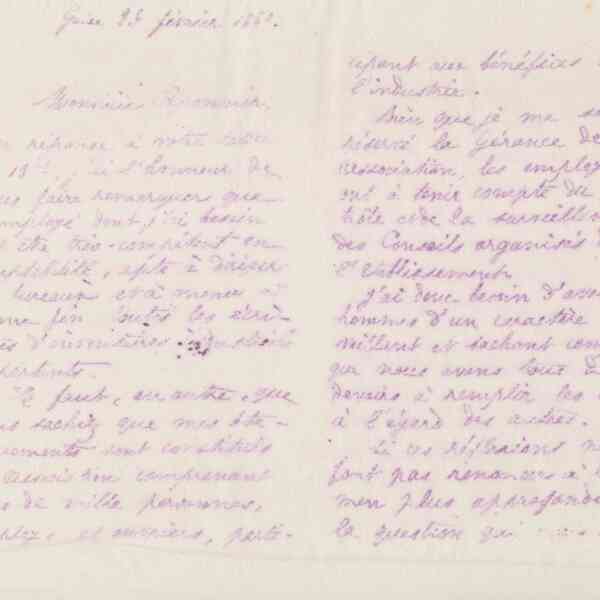 Guise 23 février 188
Monsieur
en réponse à votre lettre
19 j'ai l'honneur de
us faire remarquer que
employé dont j'ai besoin
être très-compétent en
mptabilité, apte à diriger
bureaux et à mener à
nne fin toutes les écri-
es d'inventaires
partants.
Il faut, en outre, que
us sachiez que mes éta-
ssements sont constitués
association comprenant
s de mille personnes,
ployés et ouvriers, parti-
cipant aux bénéfices
l'industrie.
Bien que je me so
réservé la Gérance de
association, les employ
ont à tenir compte du
trôle et de la surveillan
des Conseils organisés
l'Etablissement.
J'ai donc besoin d'avo
hommes d'un caractère
et sachant com
que nous avons tous
devoirs à remplir les
à l'égard des autres.
Si ces réflexions n
font pas renoncer à l
men plus approfond
la question qui